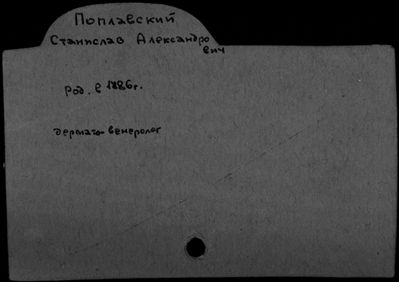 Поплавский
Станислав Александро
вич
род. в 1886г.
дермато-венеролог